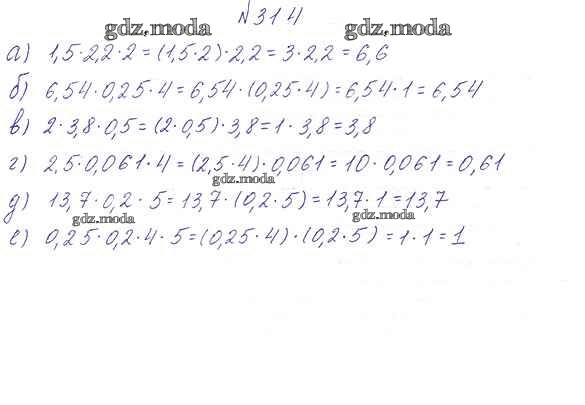 №314
gdz.moda gdz.moda
а) 1,5·2,2·2=(1,5·2)·2,2=3·2,2=6,6
б) 6,54·0,25·4=6,54·(0,25·4)=6,54·1=6,54
в) 2·3,8·0,5=(2·0,5)·3,8=1·3,8=3,8
г) 2,5·0,061·4=(2,5·4)·0,061=10·0,061=0,61
gdz.moda
д) 13,7·0,2·5=13,7·(0,2·5)=13,7·1=13,7
gdz.moda gdz.moda
е) 0,25·0,2·4·5=(0,25·4)·(0,2·5)=1·1=1